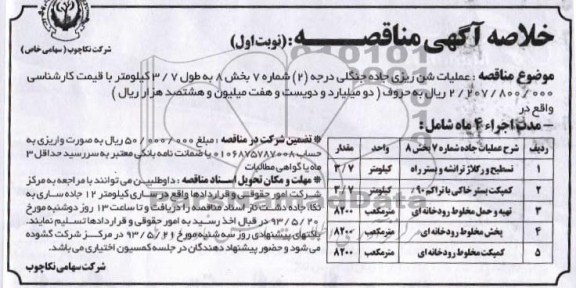 خلاصه آگهی مناقصه : (نوبت اول)
شرکت نکاچوب (سهامی خاص)
موضوع مناقصه : عملیات شن ریزی جاده جنگلی درجه (۲) شماره ۷ بخش ۸ به طول ۳/۷ کیلومتر با قیمت کارشناسی
۲/۲۰۷/۸۰۰/۰۰۰ ریال به حروف ( دو میلیارد و دویست و هفت میلیون و هشتصد هزار ریال )
واقع در
– مدت اجراء ۴ ماه شامل :
ردیف شرح عملیات جاده شماره ۷ بخش ۸ واحد مقدار
۱ تسطیح و رگلاژ ترانشه و بستر راه کیلومتر ۳/۷
۲ کمپکت بستر خاکی با تراکم ۹۰٪ کیلومتر ۳/۷
۳ تهیه و حمل مخلوط رودخانه ای مترمکعب ۸۲۰۰
۴ پخش مخلوط رودخانه ای مترمکعب ۸۲۰۰
۵ کمپکت مخلوط رودخانه ای مترمکعب ۸۲۰۰
* تضمین شرکت در مناقصه : مبلغ ۵۰/۰۰۰/۰۰۰ ریال به صورت واریزی به
حساب ۰۱۰۶۸۷۵۷۸۷۰۰۸ یا ضمانت نامه بانکی معتبر به سررسید حداقل ۳
ماه یا گواهی مطالبات
* مهلت و مکان تحویل اسناد مناقصه : داوطلبین می توانند با مراجعه به مرکز
شرکت امور حقوقی و قراردادها واقع در ساری کیلومتر ۱۲ جاده ساری به
نکا، جاده دشت ناز اسناد مناقصه را دریافت و تا ساعت ۱۳ روز دوشنبه مورخ
۹۳/۵/۲۰ در قبال اخذ رسید به امور حقوقی و قراردادها تسلیم نمایند.
پاکتهای پیشنهادی روز سه شنبه مورخ ۹۳/۵/۲۱ در مرکز شرکت گشوده
می شود و حضور پیشنهاد دهندگان در جلسه کمسیون اختیاری می باشد.
شرکت سهامی نکاچوب